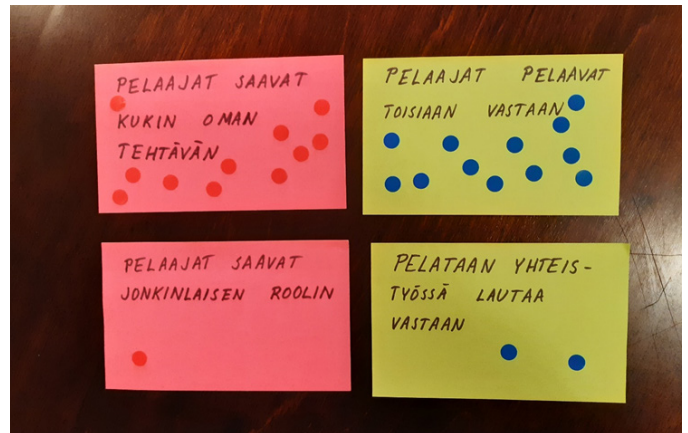 PELAAJAT SAAVAT
KUKIN OMAN
TEHTÄVÄN
PELAAJAT PELAAVAT
TOISIAAN VASTAAN
PELAAJAT SAAVAT
JONKINLAISEN ROOLIN
PELATAAN YHTEIS-
TYÖSSÄ LAUTAA
VASTAAN